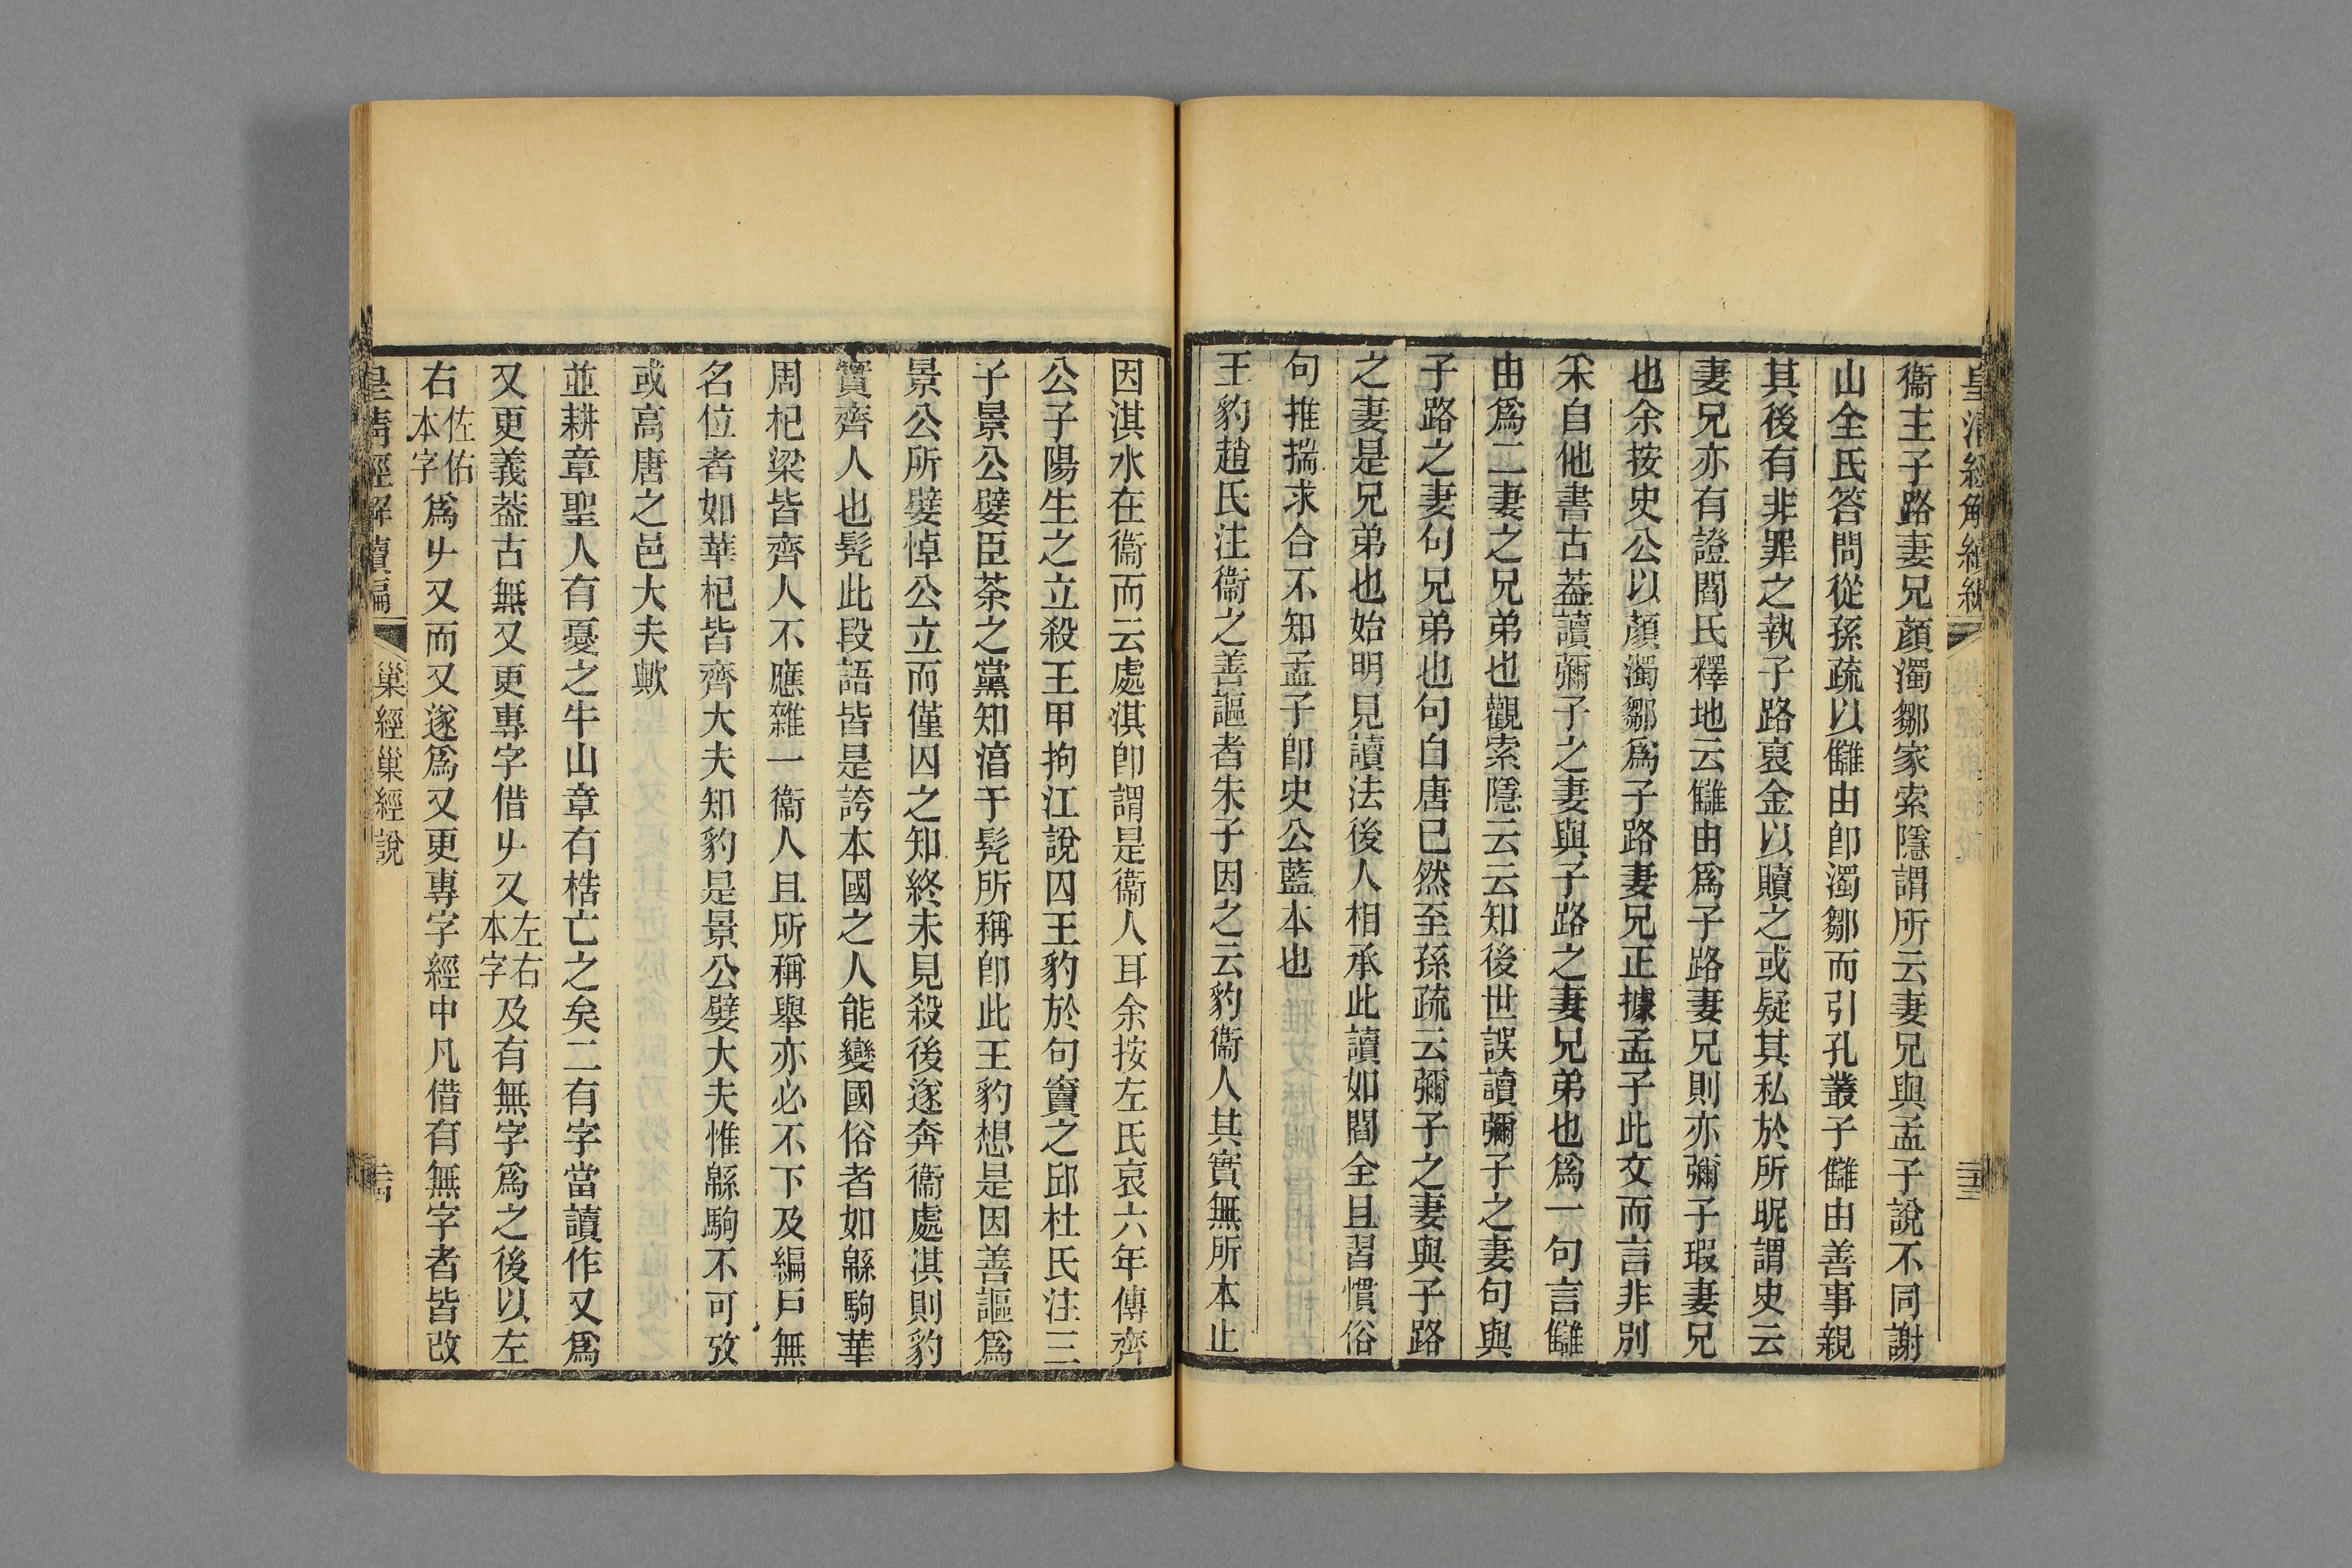 皇清經解續編
衞主子路妻兄顏濁鄒家索隱謂所云妻兄與孟子說不同謝
山全氏答問從孫疏以讎由卽濁鄒而引孔叢子讎由善事親
其後有非罪之執子路裒金以贖之或疑其私於所昵謂史云
妻兄亦有證閻氏釋地云讎由爲子路妻兄則亦彌子瑕妻兄
也余按史公以顏濁鄒爲子路妻兄正據孟子此文而言非別
采自他書古葢讀彌子之妻與子路之妻兄弟也爲一句言讎
由爲二妻之兄弟也觀索隱云云知後世誤讀彌子之妻句與
子路之妻句兄弟也句自唐已然至孫疏云彌子之妻與子路
之妻是兄弟也始明見讀法後人相承此讀如閻全且習慣俗
句推揣求合不知孟子卽史公藍本也
王豹趙氏注衞之善謳者朱子因之云豹衞人其實無所本止
因淇水在衞而云處淇卽謂是衞人耳余按左氏哀六年傳齊
公子陽生之立殺王甲拘江說囚王豹於句竇之邱杜氏注三
子景公嬖臣荼之黨知淳于髠所稱卽此王豹想是因善謳爲
景公所嬖悼公立而僅囚之知終未見殺後遂奔衞處淇則豹
實齊人也髠此段語皆是誇本國之人能變國俗者如緜駒華
周杞梁皆齊人不應雜一衞人且所稱舉亦必不下及編戶無
名位者如華杞皆齊大夫知豹是景公嬖大夫惟緜駒不可攷
或高唐之邑大夫歟
並耕章聖人有憂之牛山章有梏亡之矣二有字當讀作又爲
又更義葢古無又更專字借𠂇又左右本字及有無字爲之後以左
右佐佑本字爲𠂇又而又遂爲又更專字經中凡借有無字者皆改
皇清經解續編 巢經巢經說